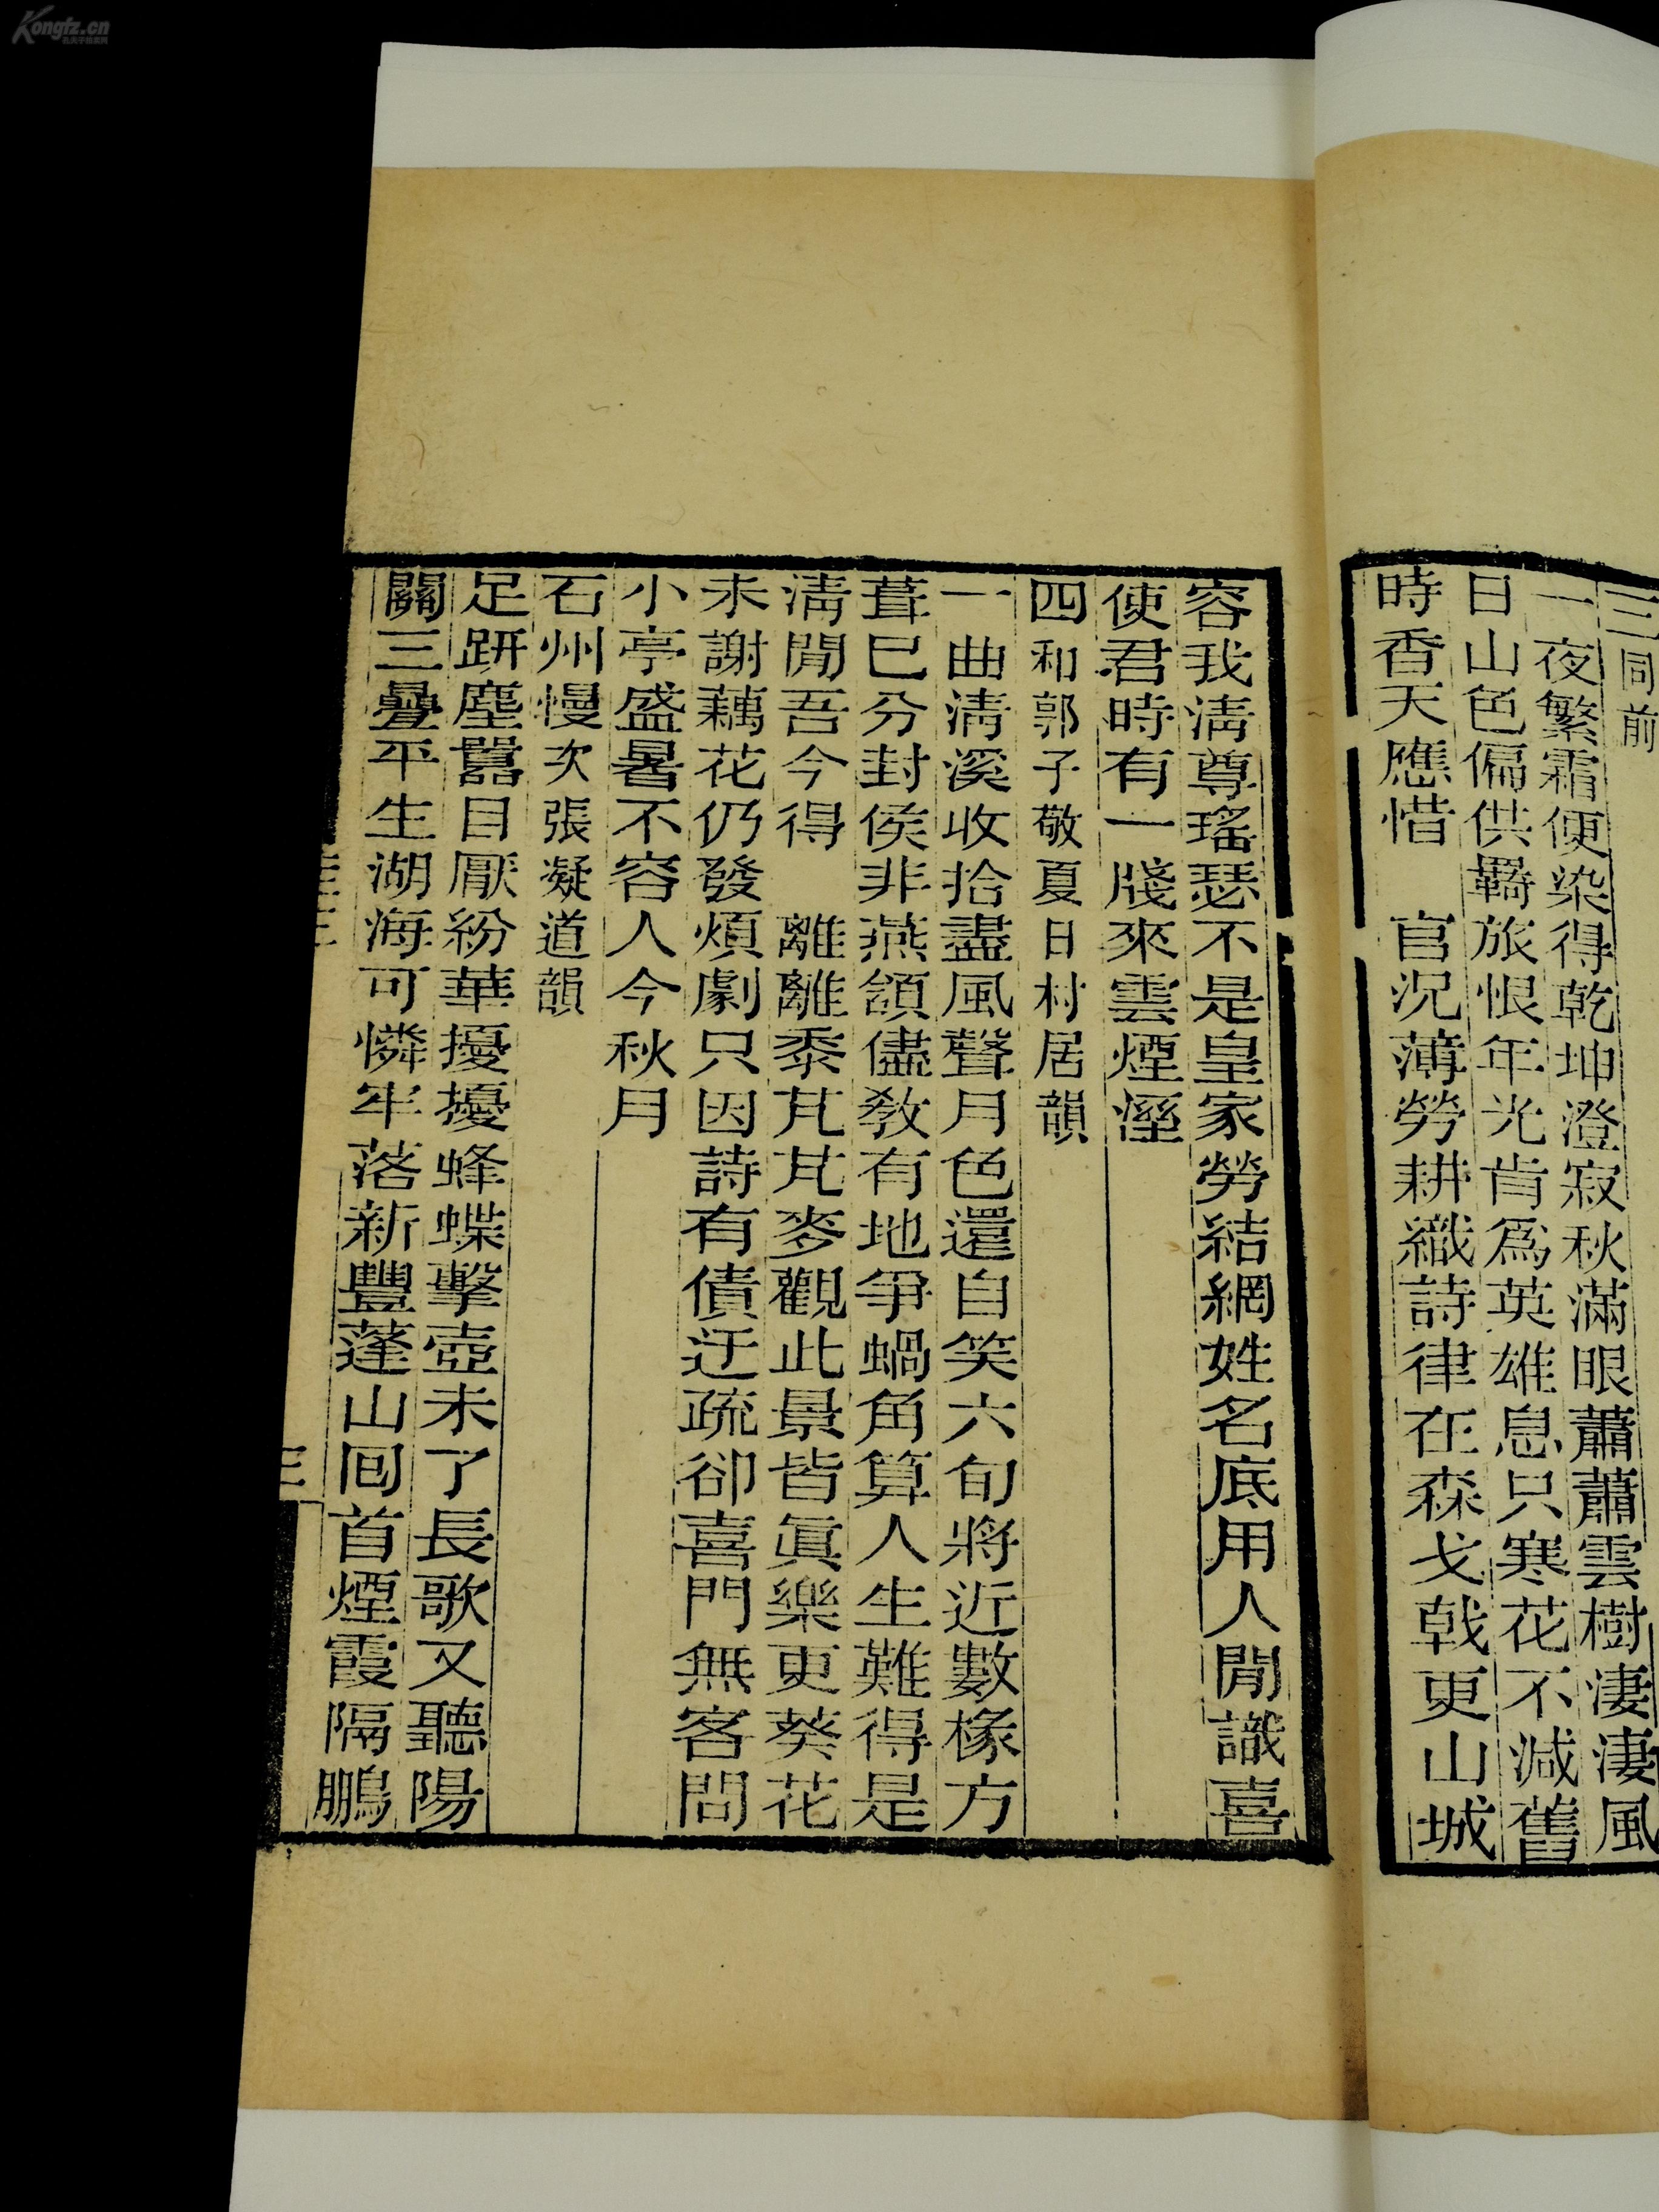 三同前
一夜繁霜便染得乾坤澄寂秋滿眼蕭蕭雲樹淒淒風
日山色偏供羇旅恨年光肯爲英雄息只寒花不減舊
時香天應惜　官況薄勞耕織詩律在森戈戟更山城
容我淸尊瑤瑟不是皇家勞結網姓名底用人閒識喜
使君時有一牋來雲煙溼
四和郭子敬夏日村居韻
一曲淸溪收拾盡風聲月色還自笑六旬將近數椽方
葺巳分封侯非燕頷儘敎有地爭蝸角算人生難得是
淸閒吾今得　離離黍芃芃麥觀此景皆眞樂更葵花
未謝藕花仍發煩劇只因詩有債迂疏卻喜門無客問
小亭盛暑不容人今秋月
石州慢次張凝道韻
足趼塵囂目厭紛華擾擾蜂蝶擊壺未了長歌又聽陽
關三疊平生湖海可憐牢落新豐蓬山回首煙霞隔鵬
三
Kongfz.cn